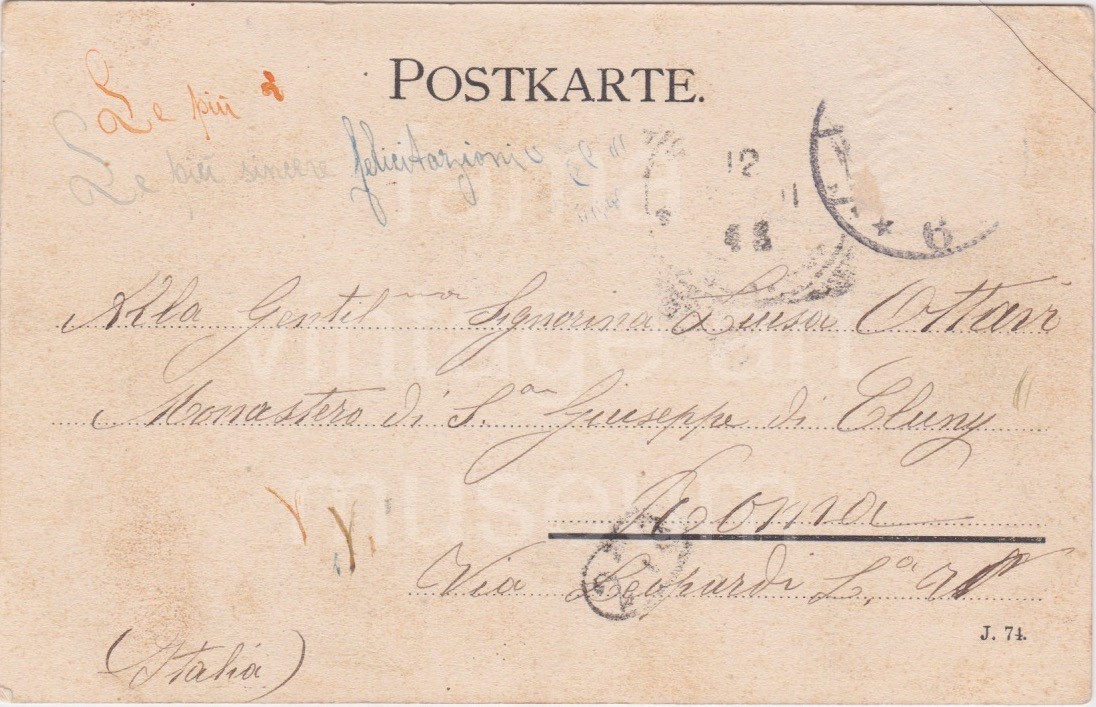 POSTKARTE.
Le più
Le più sincere felicitazioni
12
6
Alla Gentil ma Signorina Luisa Ottavi
Monastero di S. an Giuseppe di Cluny
Roma
Via Leopardi L.a
J. 74.
(Italia)
fama
vintage art
museum